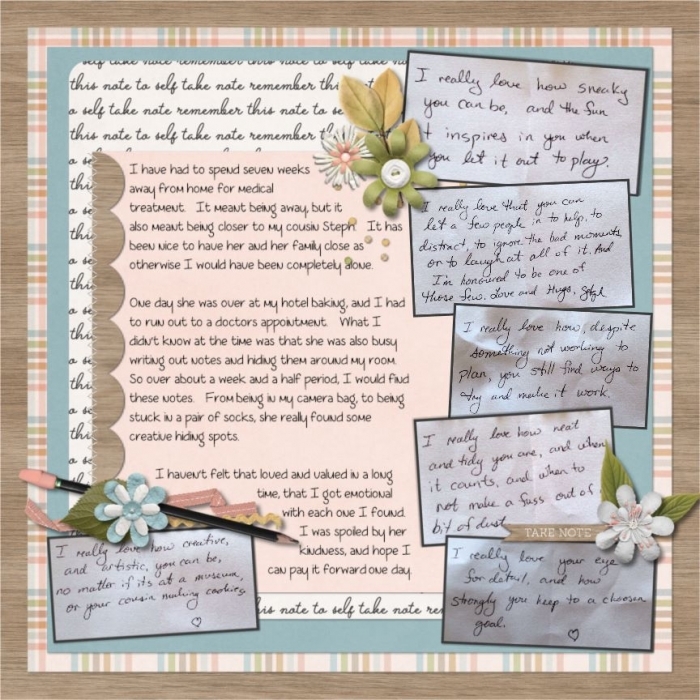 this note to self take note remember thi
o self take note remember this note to
note to self take note remember
to self take note remember this
I have had to spend seven weeks
away from home for medical
treatment. It meant being away, but it
also meant being closer to my cousin Steph. It has
been nice to have her and her family close as
otherwise I would have been completely alone.
One day she was over at my hotel baking, and I had
to run out to a doctors appointment. What I
didn't know at the time was that she was also busy
writing out notes and hiding them around my room.
So over about a week and a half period, I would find
these notes. From being in my camera bag, to being
stuck in a pair of socks, she really found some
creative hiding spots.
I haven't felt that loved and valued in a long
time, that I got emotional
with each one I found.
I was spoiled by her
kindness, and hope I
can pay it forward one day.
his note to self take note re
I really love how sneaky
you can be, and the fun
it inspires in you when
you let it out to play.
I really love that you can
let a few people in to help, to
distract, to ignore the bad moments
or to laugh at all of it. And
I'm honoured to be one of
those few. Love and Hugs, Steph
I really love how, despite
something not working to
plan, you still find ways to
try and make it work.
I really love how neat
and tidy you are, and when
it counts, and when to
not make a fuss out of
bit of dust
TAKE NOTE
I really love your eye
for detail, and how
strongly you keep to a choosen
goal.
I really love how creative,
and artistic, you can be,
no matter if its at a museum,
or your cousin making cookies